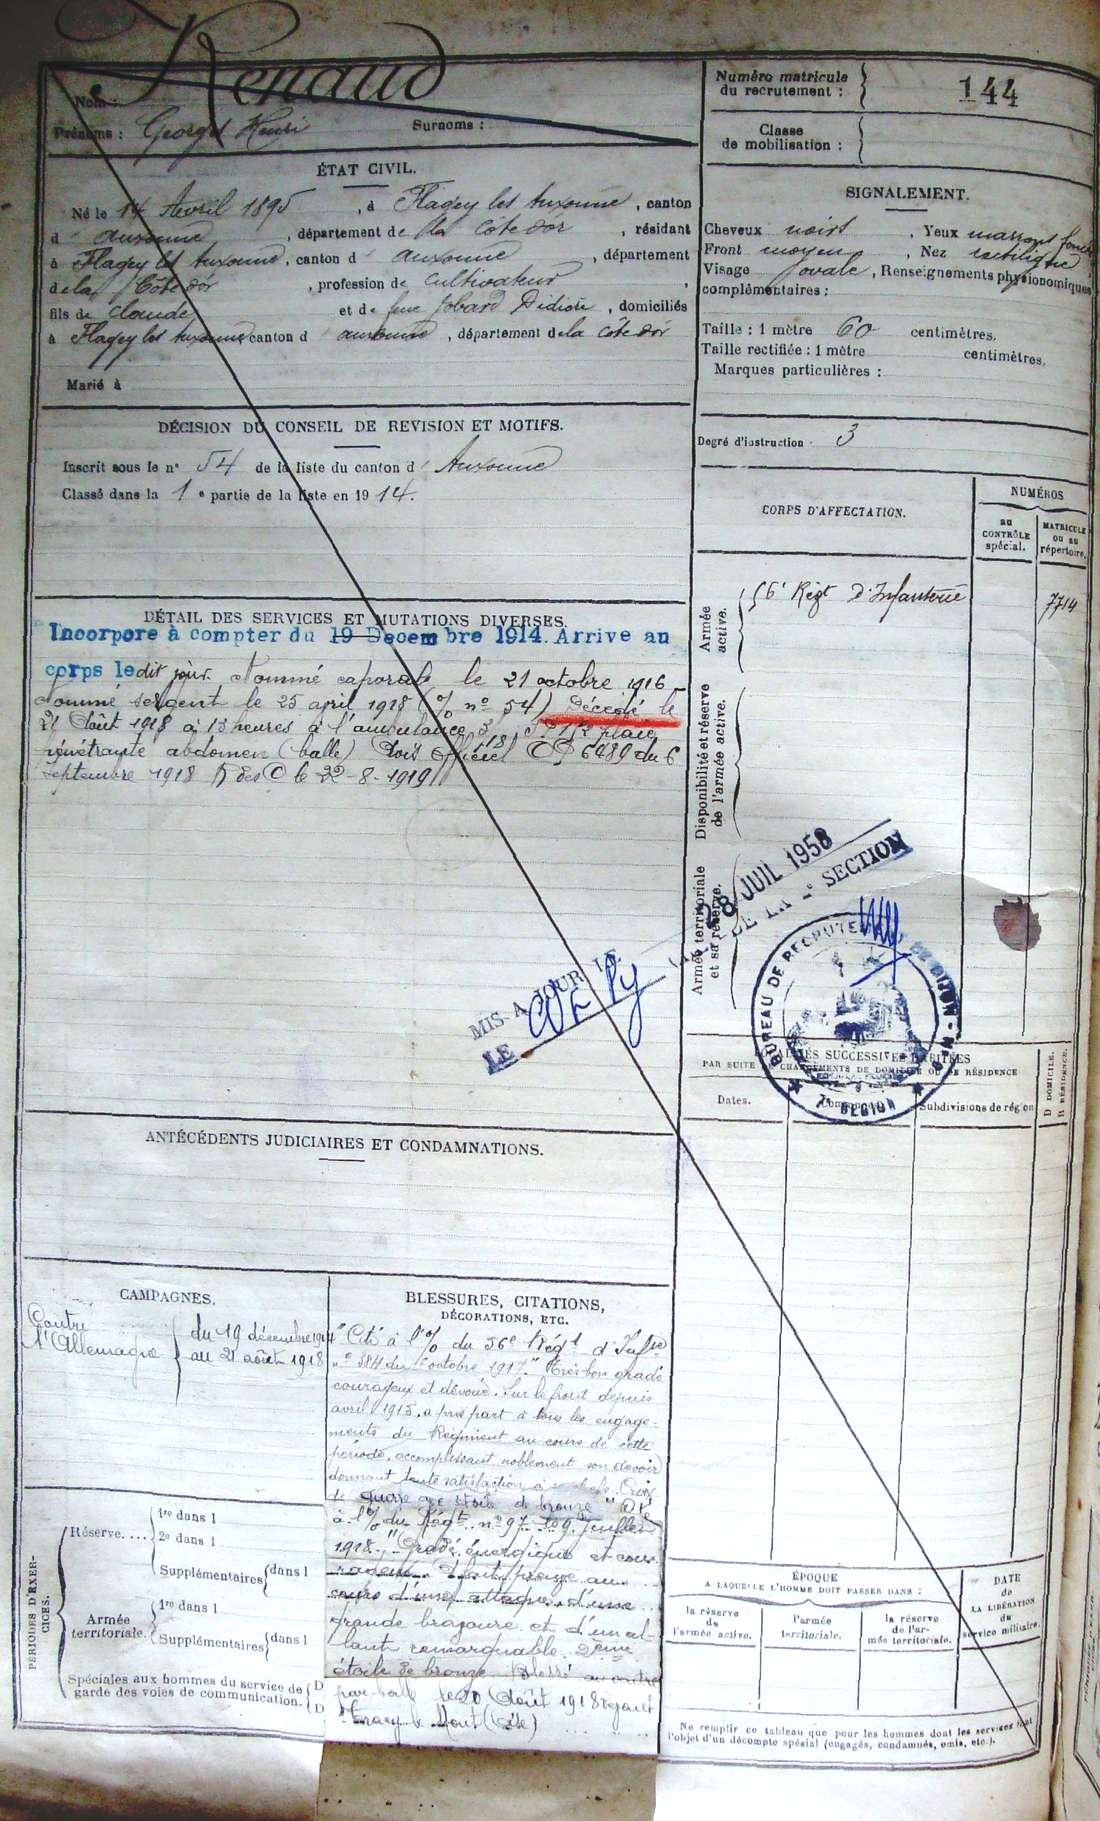 Renaud
Nom :
Prénoms : Georges Henri Surnoms :
Numéro matricule
du recrutement : 144
Classe
de mobilisation :
ÉTAT CIVIL.
Né le 14 Avril 1895, à Flagey les Auxonne, canton
d' auxonne, département de la Côte d'or, résidant
à Flagey les Auxonne, canton d' auxonne, département
de la Côte d'or, profession de cultivateur,
fils de Claude et de feue Jobard Didière, domiciliés
à Flagey les Auxonne canton d' auxonne, département de la côte d'or
Marié à
SIGNALEMENT.
Cheveux noirs, Yeux marrons foncés
Front moyen, Nez rectiligne
Visage ovale, Renseignements physionomiques
complémentaires :
Taille : 1 mètre 60 centimètres.
Taille rectifiée : 1 mètre centimètres.
Marques particulières :
Degré d'instruction 3
DÉCISION DU CONSEIL DE REVISION ET MOTIFS.
Inscrit sous le n° 54 de la liste du canton d' Auxonne
Classé dans la 1e partie de la liste en 1914.
DÉTAIL DES SERVICES ET MUTATIONS DIVERSES.
Incorpore à compter du 19 Decembre 1914. Arrive au
corps ledit jour. Nommé caporal le 21 octobre 1916
Nommé sergent le 25 avril 1918 (O/ n° 54) Décédé le
21 Août 1918 à 13 heures à l'ambulance 3/18 S.P. 172 plaie
pénétrante abdomen (balle) Avis officiel CP 6489 du 6
septembre 1918 R des C le 22-8-1919
CORPS D'AFFECTATION.
NUMÉROS
au
CONTRÔLE
spécial.
MATRICULE
ou au
répertoire.
Armée
active.
56e Régt D'Infanterie 7714
Disponibilité et réserve
de l'armée active.
Armée territoriale
et sa réserve.
MIS A JOUR LE
28 JUIL 1958
LE
DE LA 2e SECTION
BUREAU DE RECRUTEMENT DE DIJON
7e REGION
LOCALITÉS SUCCESSIVES HABITÉES
PAR SUITE DE CHANGEMENTS DE DOMICILE OU DE RÉSIDENCE
Dates.
Communes.
Subdivisions de région
D DOMICILE.
R RÉSIDENCE.
ANTÉCÉDENTS JUDICIAIRES ET CONDAMNATIONS.
CAMPAGNES.
Contre
l'Allemagne
du 19 décembre 1914
au 21 août 1918
BLESSURES, CITATIONS,
DÉCORATIONS, ETC.
"Cité à l'O/ du 56e Régt d'Infie
n° 384 du 6 octobre 1917." Très bon gradé
courageux et dévoué. Sur le front depuis
avril 1915, a pris part à tous les engage-
ments du Régiment au cours de cette
période, accomplissant noblement son devoir
donnant toute satisfaction à ses chefs. Croix
de guerre avec étoile de bronze" Cité
à l'O/ du Régt n° 97 du 9 Juillet
1918. "Gradé énergique et cou-
rageux. S'est
cours d'une attaque, d'une
grande bravoure et d'un al-
lant remarquable. 2ème
étoile de bronze. Blessé
par balle le 20 Août 1918 devant
Tracy le Mont (Oise)
PÉRIODES D'EXER-
CICES.
Réserve....
1re dans l
2e dans l
Supplémentaires dans l
Armée
territoriale.
1re dans l
Supplémentaires dans l
Spéciales aux hommes du service de D
garde des voies de communication. D
ÉPOQUE
A LAQUELLE L'HOMME DOIT PASSER DANS :
la réserve
de l'armée active.
l'armée
territoriale.
la réserve
de l'ar-
mée territoriale.
DATE
de
LA LIBÉRATION
du
service militaire.
Ne remplir ce tableau que pour les hommes dont les services font
l'objet d'un décompte spécial (engagés, condamnés, omis, etc.).